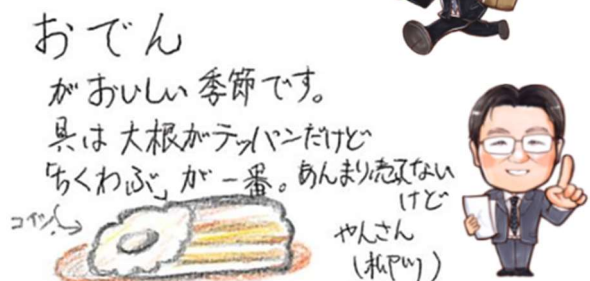 おでん
がおいしい季節です。
具は大根がテッパンだけど
「ちくわぶ」が一番。あんまり売ってない
けど
コイツ
やんさん